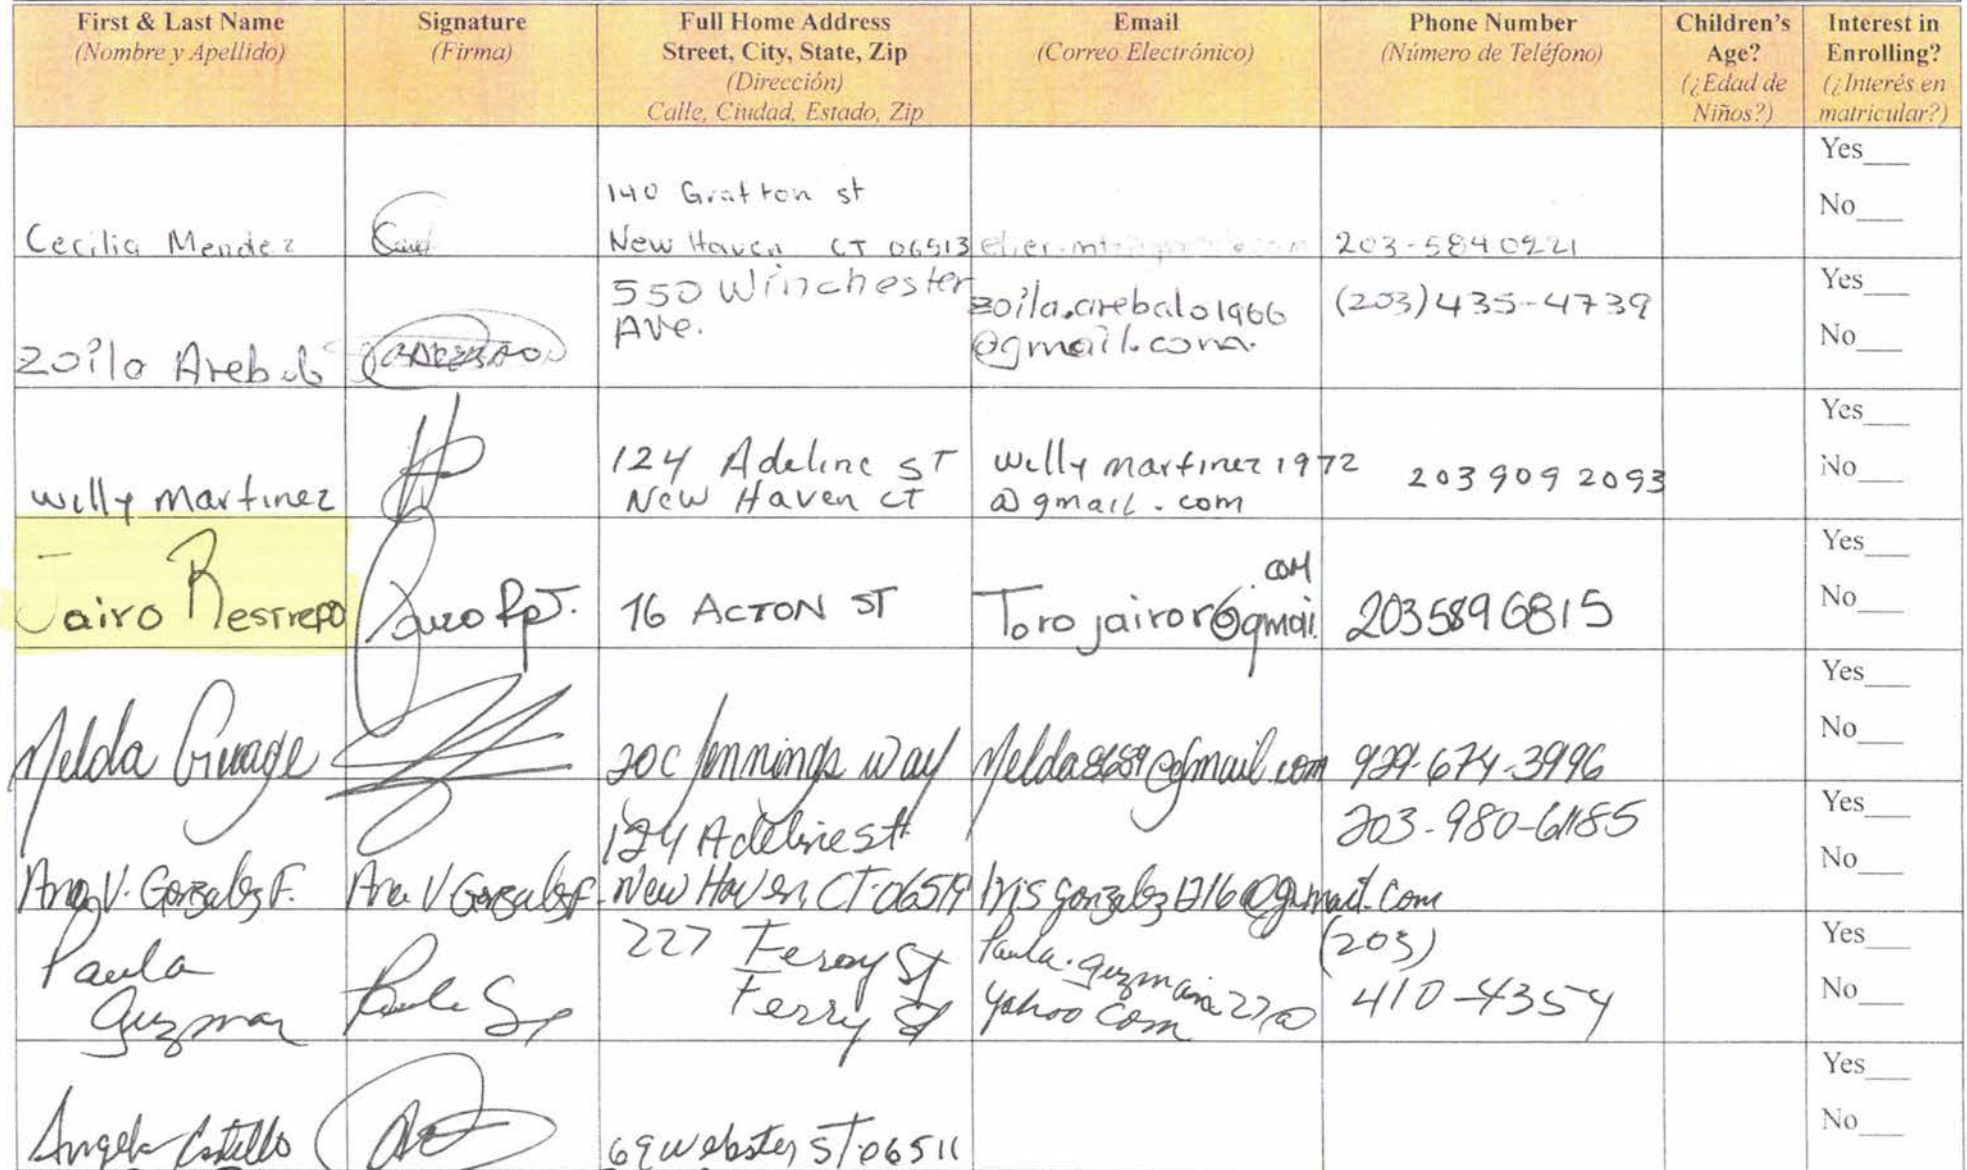 First & Last Name
(Nombre y Apellido)
Signature
(Firma)
Full Home Address
Street, City, State, Zip
(Dirección)
Calle, Ciudad, Estado, Zip
Email
(Correo Electrónico)
Phone Number
(Número de Teléfono)
Children's
Age?
(¿Edad de
Niños?)
Interest in
Enrolling?
(¿Interés en
matricular?)
Cecilia Mendez
140 Grafton st
New Haven CT 06513
203-5840221
Yes___
No___
Zoila Arebalo
550 Winchester
Ave.
zoila.arebalo1966
@gmail.com.
(203)435-4739
Yes___
No___
willy martinez
124 Adeline ST
New Haven CT
willy martinez 1972
@gmail.com
203 909 2093
Yes___
No___
Jairo Restrepo
16 ACTON ST
.com
Torojairor6@gmai
2035896815
Yes___
No___
Melda
20C Jennings Way
Melda8689@gmail.com
929-674-3996
Yes___
No___
Ana V. Gonzalez F.
Ana V Gonzalez F.
124 Adeline st
New Haven, CT. 06519
@gmail.com
203-980-6185
Yes___
No___
Paula
Guzman
Paula
227 Ferry St
Ferry St
Paula.
yahoo com
(203)
410-4354
Yes___
No___
Angela Castillo
69 Webster ST. 06511
Yes___
No___